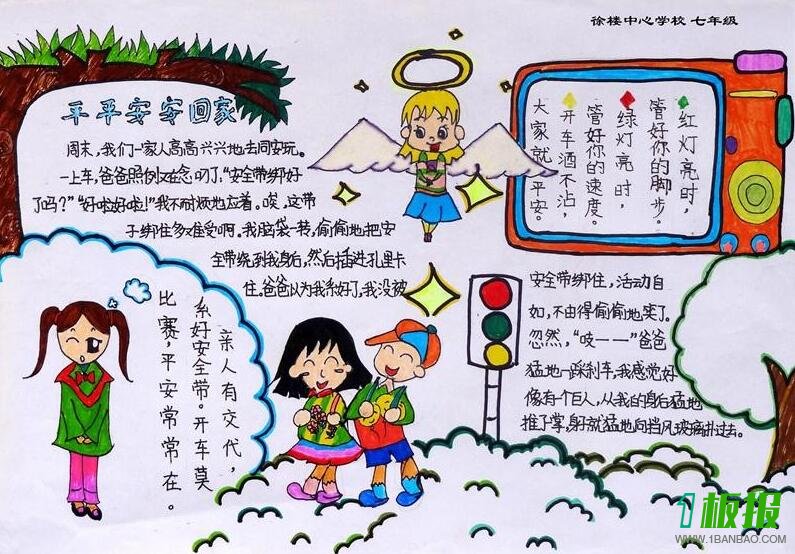 徐楼中心学校 七年级
平平安安回家
周末，我们一家人高高兴兴地去同安玩。
一上车，爸爸照例又在念叨了，“安全带绑好
了吗？”“好啦好啦！”我不耐烦地应着。唉，这带
子绑住多难受啊。我脑袋一转，偷偷地把安
全带绕到我身后，然后插进孔里卡
住。爸爸以为我系好了，我没被
安全带绑住，活动自
如，不由得偷偷地笑了。
忽然，“吱一一”爸爸
猛地一踩刹车，我感觉好
像有个巨人，从我的身后猛地
推了掌，身子就猛地向挡风玻璃扑过去。
红灯亮时，
管好你的脚步。
绿灯亮时，
管好你的速度。
开车酒不沾，
大家就平安。
亲人有交代，
系好安全带。开车莫
比赛，平安常常在。
1板报
WWW.1BANBAO.COM